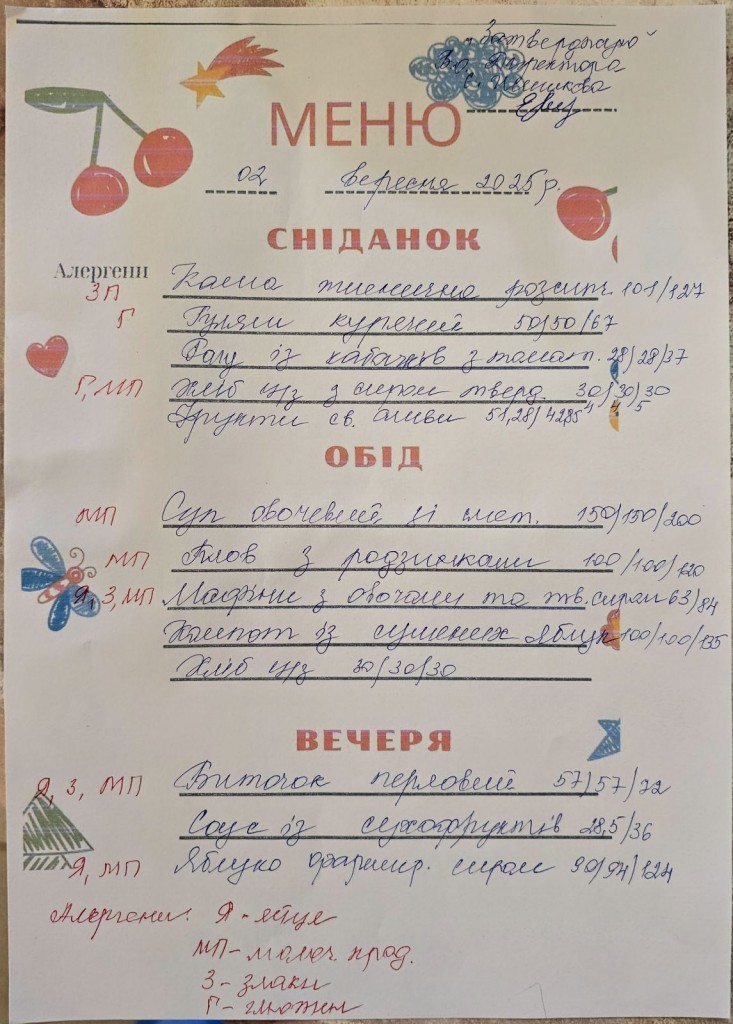 „Затверджую"
В.о. Директора
МЕНЮ
02 вересня 2025 р.
СНІДАНОК
Алергени
ЗП Каша пшенична розсипч. 101/127
Г Гуляш курячий 50/50/67
Рагу із кабачків з томат. 28/28/37
Г, МП Хліб ц/з з сиром тверд. 30/30/30
4 4 5
Фрукти св. сливи 51,28/42,85
ОБІД
МП Суп овочевий зі смет. 150/150/200
МП Плов з родзинками 100/100/120
Я, З, МП Мафіни з овочами та тв. сиром 63/84
Компот із сушених яблук 100/100/135
Хліб ц/з 30/30/30
ВЕЧЕРЯ
Я, З, МП Биточок перловий 57/57/72
Соус із сухофруктів 28,5/36
Я, МП Яблуко фаршир. сиром 90/94/124
Алергени: Я - яйце
МП - молоч. прод.
З - злаки
Г - глютен